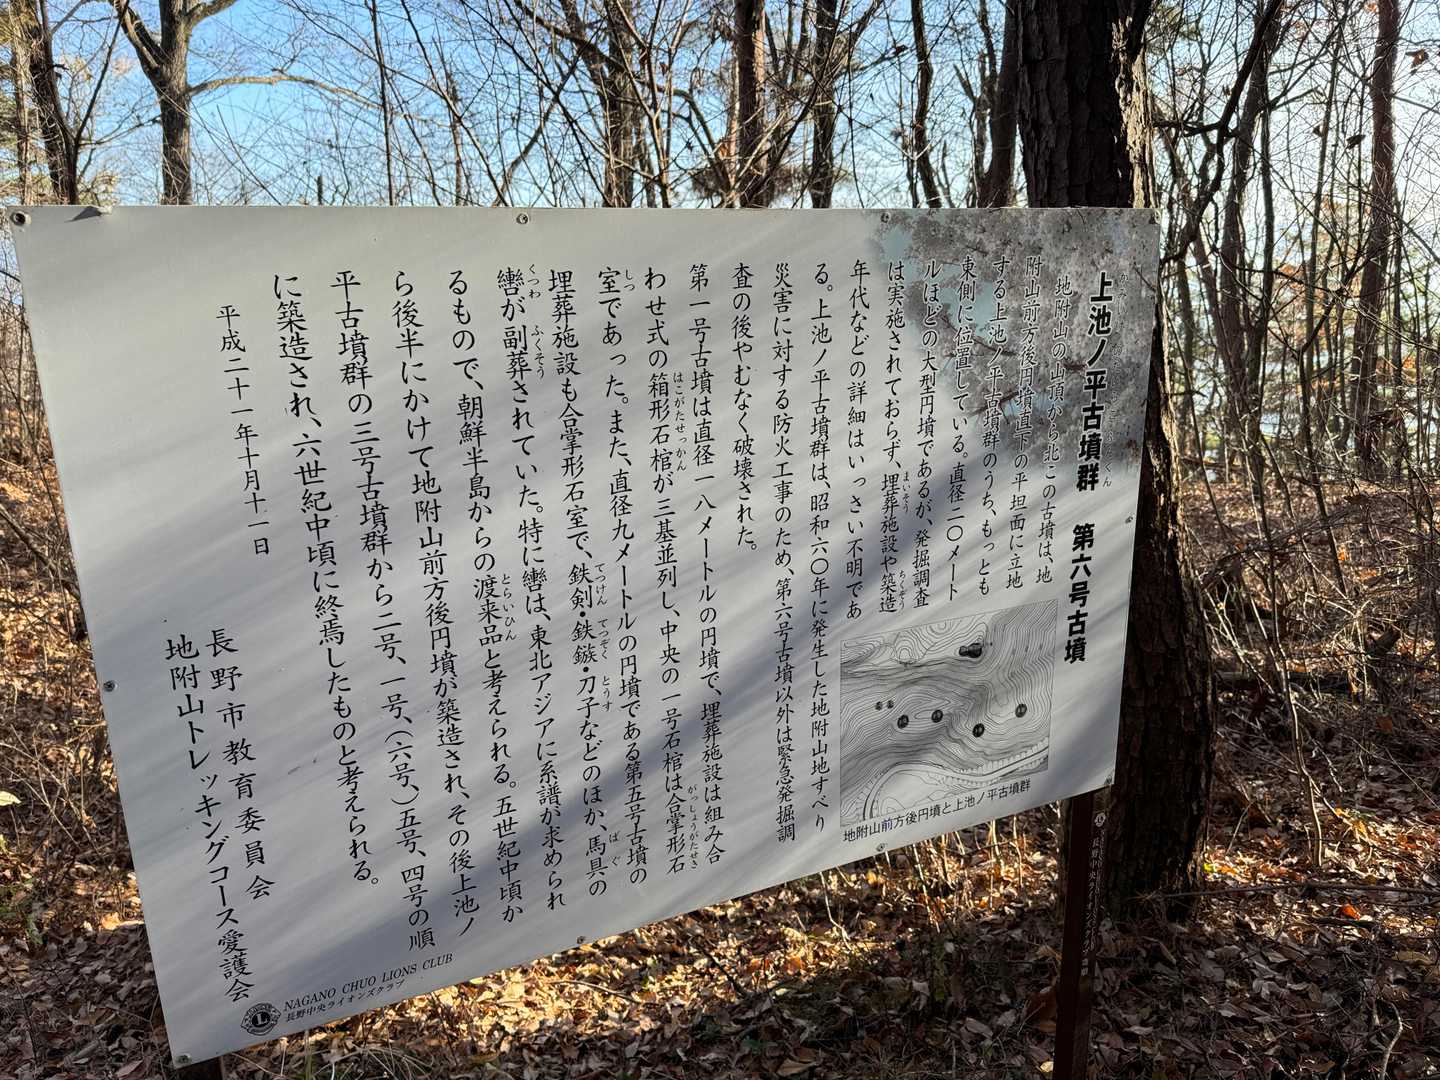 上池ノ平古墳群 第六号古墳
地附山の山頂から北この古墳は、地
附山前方後円墳直下の平坦面に立地
する上池ノ平古墳群のうち、もっとも
東側に位置している。直径二〇メート
ルほどの大型円墳であるが、発掘調査
は実施されておらず、埋葬施設や築造
まいそう
ちくぞう
年代などの詳細はいっさい不明であ
る。上池ノ平古墳群は、昭和六〇年に発生した地附山地すべり
災害に対する防火工事のため、第六号古墳以外は緊急発掘調
査の後やむなく破壊された。
第一号古墳は直径一八メートルの円墳で、埋葬施設は組み合
わせ式の箱形石棺が三基並列し、中央の一号石棺は合掌形石
はこがたせっかん
がっしょうがたせき
室であった。また、直径九メートルの円墳である第五号古墳の
しつ
埋葬施設も合掌形石室で、鉄剣・鉄鏃・刀子などのほか、馬具の
てつけん
てつぞく
とうす
ばぐ
轡が副葬されていた。特に轡は、東北アジアに系譜が求められ
くつわ
ふくそう
るもので、朝鮮半島からの渡来品と考えられる。五世紀中頃か
とらいひん
ら後半にかけて地附山前方後円墳が築造され、その後上池ノ
平古墳群の三号古墳群から二号、一号、（六号、）五号、四号の順
に築造され、六世紀中頃に終焉したものと考えられる。
平成二十一年十月十一日
長野市教育委員会
地附山トレッキングコース愛護会
地附山前方後円墳と上池ノ平古墳群
NAGANO CHUO LIONS CLUB
長野中央ライオンズクラブ